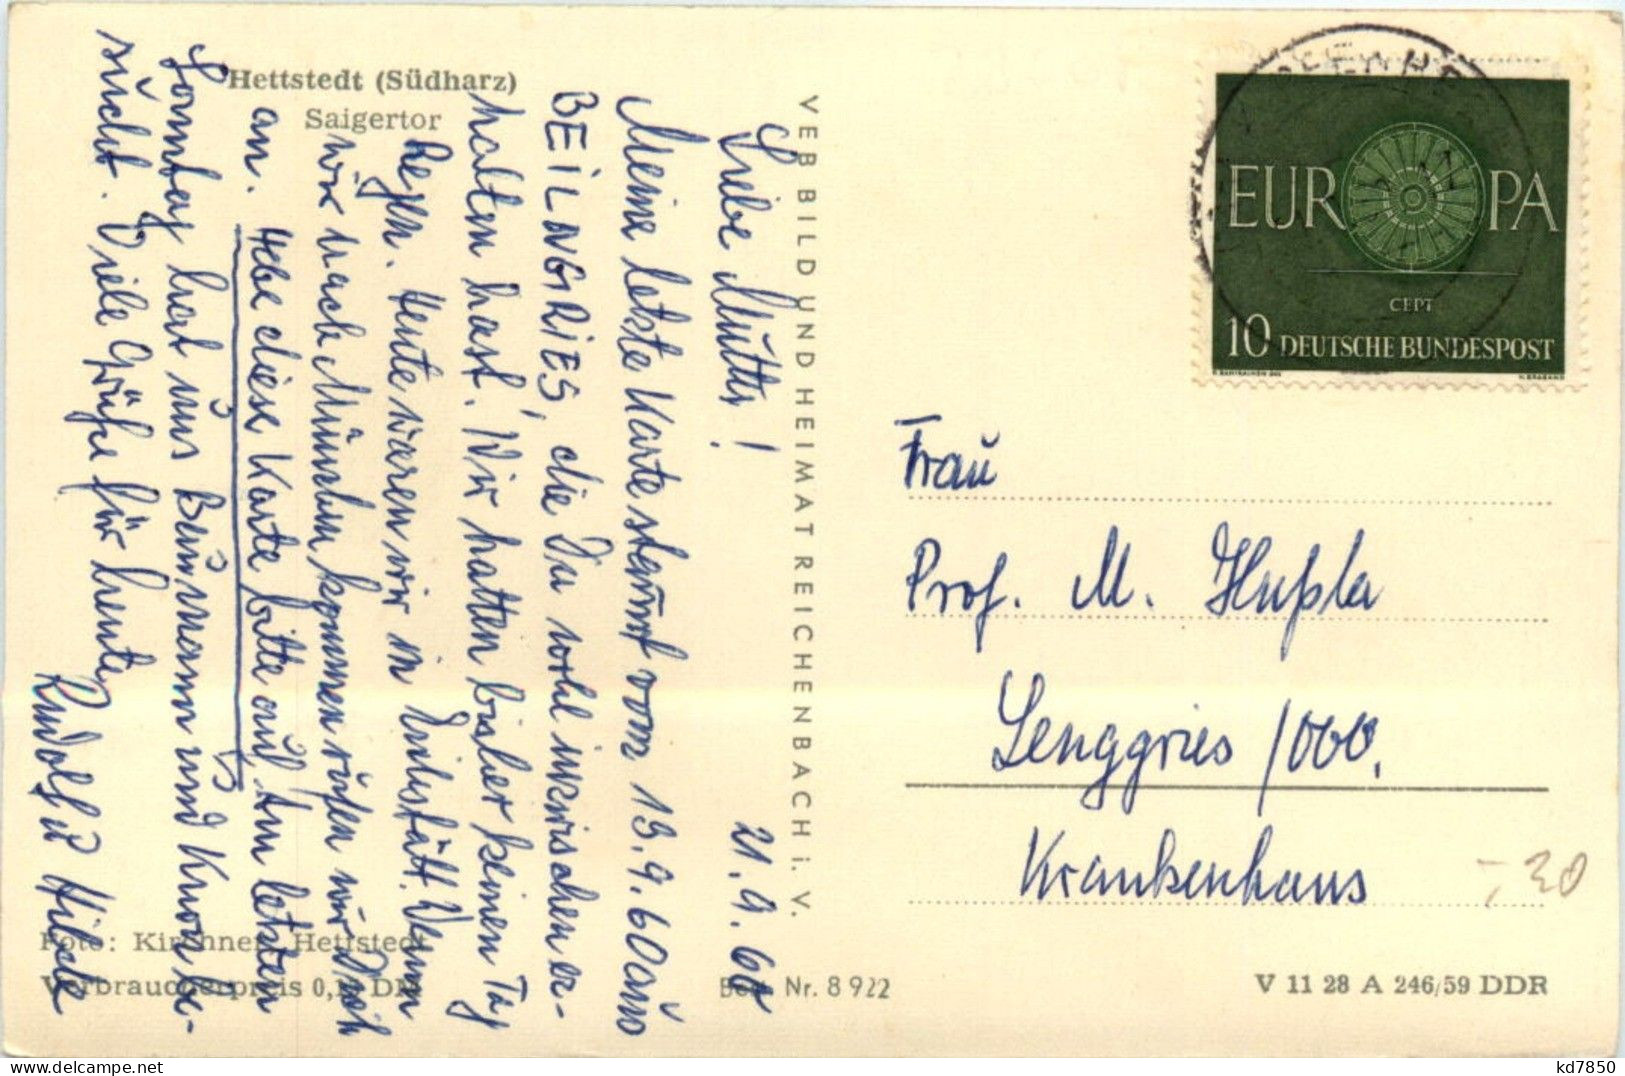 Hettstedt (Südharz)
Saigertor
21. 9. 60
Liebe Mutti!
Meine letzte Karte stammt vom 19. 9. 60 aus
BEILNGRIES, die Du wohl inzwischen er-
halten hast. Wir hatten bisher keinen Tag
Regen. Heute waren wir in Eichstätt. Wenn
wir nach München kommen rufen wir Dich
an. Hebe diese Karte bitte auf. Am letzten
Sonntag hat uns Baumann und be-
sucht. Viele Grüße für heute
Rudolf u Hilde
Foto: Kirchner, Hettstedt
Verbraucherpreis 0, DM
VEB BILD UND HEIMAT REICHENBACH i. V.
Best. Nr. 8922
V 11 28 A 246/59 DDR
EUROPA
CEPT
10 DEUTSCHE BUNDESPOST
Frau
Prof. M.
Lenggries / Obb.
Krankenhaus
-,30
kd7850